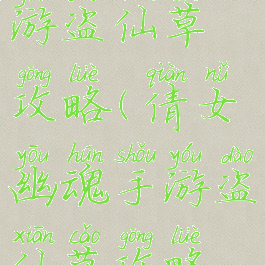 游盗仙草
gōng lüè qiàn nǚ
攻略(倩女
yōu hún shǒu yóu dào
幽魂手游盗
xiān cǎo gōng lüè
仙草攻略